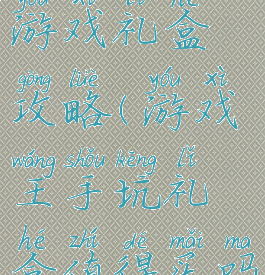 yóu xì lǐ hé
游戏礼盒
gōng lüè yóu xì
攻略(游戏
wáng shǒu kēng lǐ
王手坑礼
hé zhí dé mǎi ma
盒值得买吗